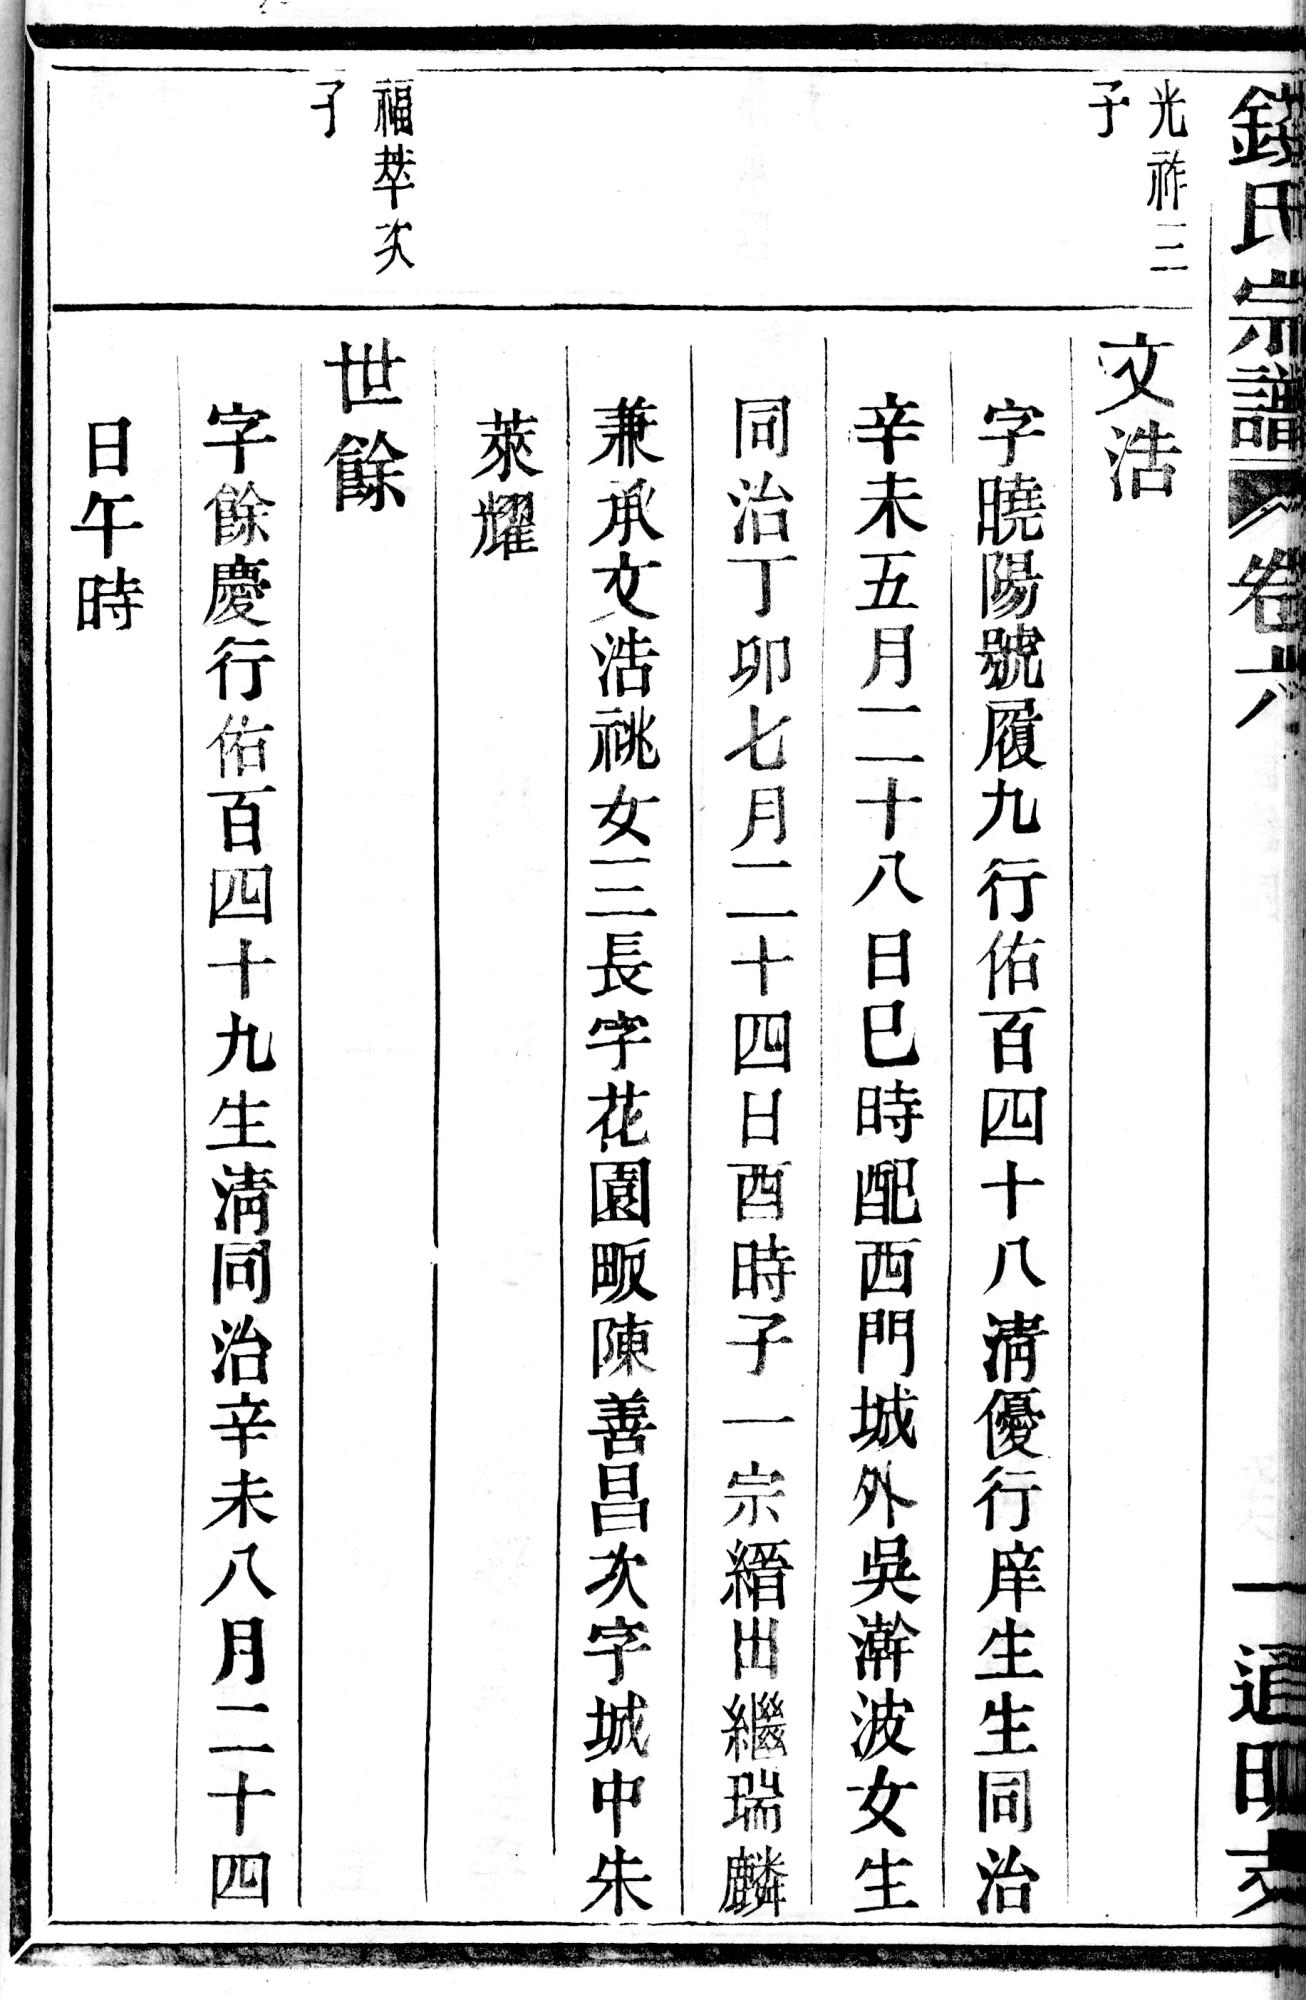 氏宗譜 卷六 一 道明支
光祚三
子
文浩
字曉陽號履九行佑百四十八清優行庠生生同治
辛未五月二十八日巳時配西門城外吳澣波女生
同治丁卯七月二十四日酉時子一宗縉出繼瑞麟
兼承文浩祧女三長字花園畈陳善昌次字城中朱
萊耀
福萃次
子
世餘
字餘慶行佑百四十九生清同治辛未八月二十四
日午時